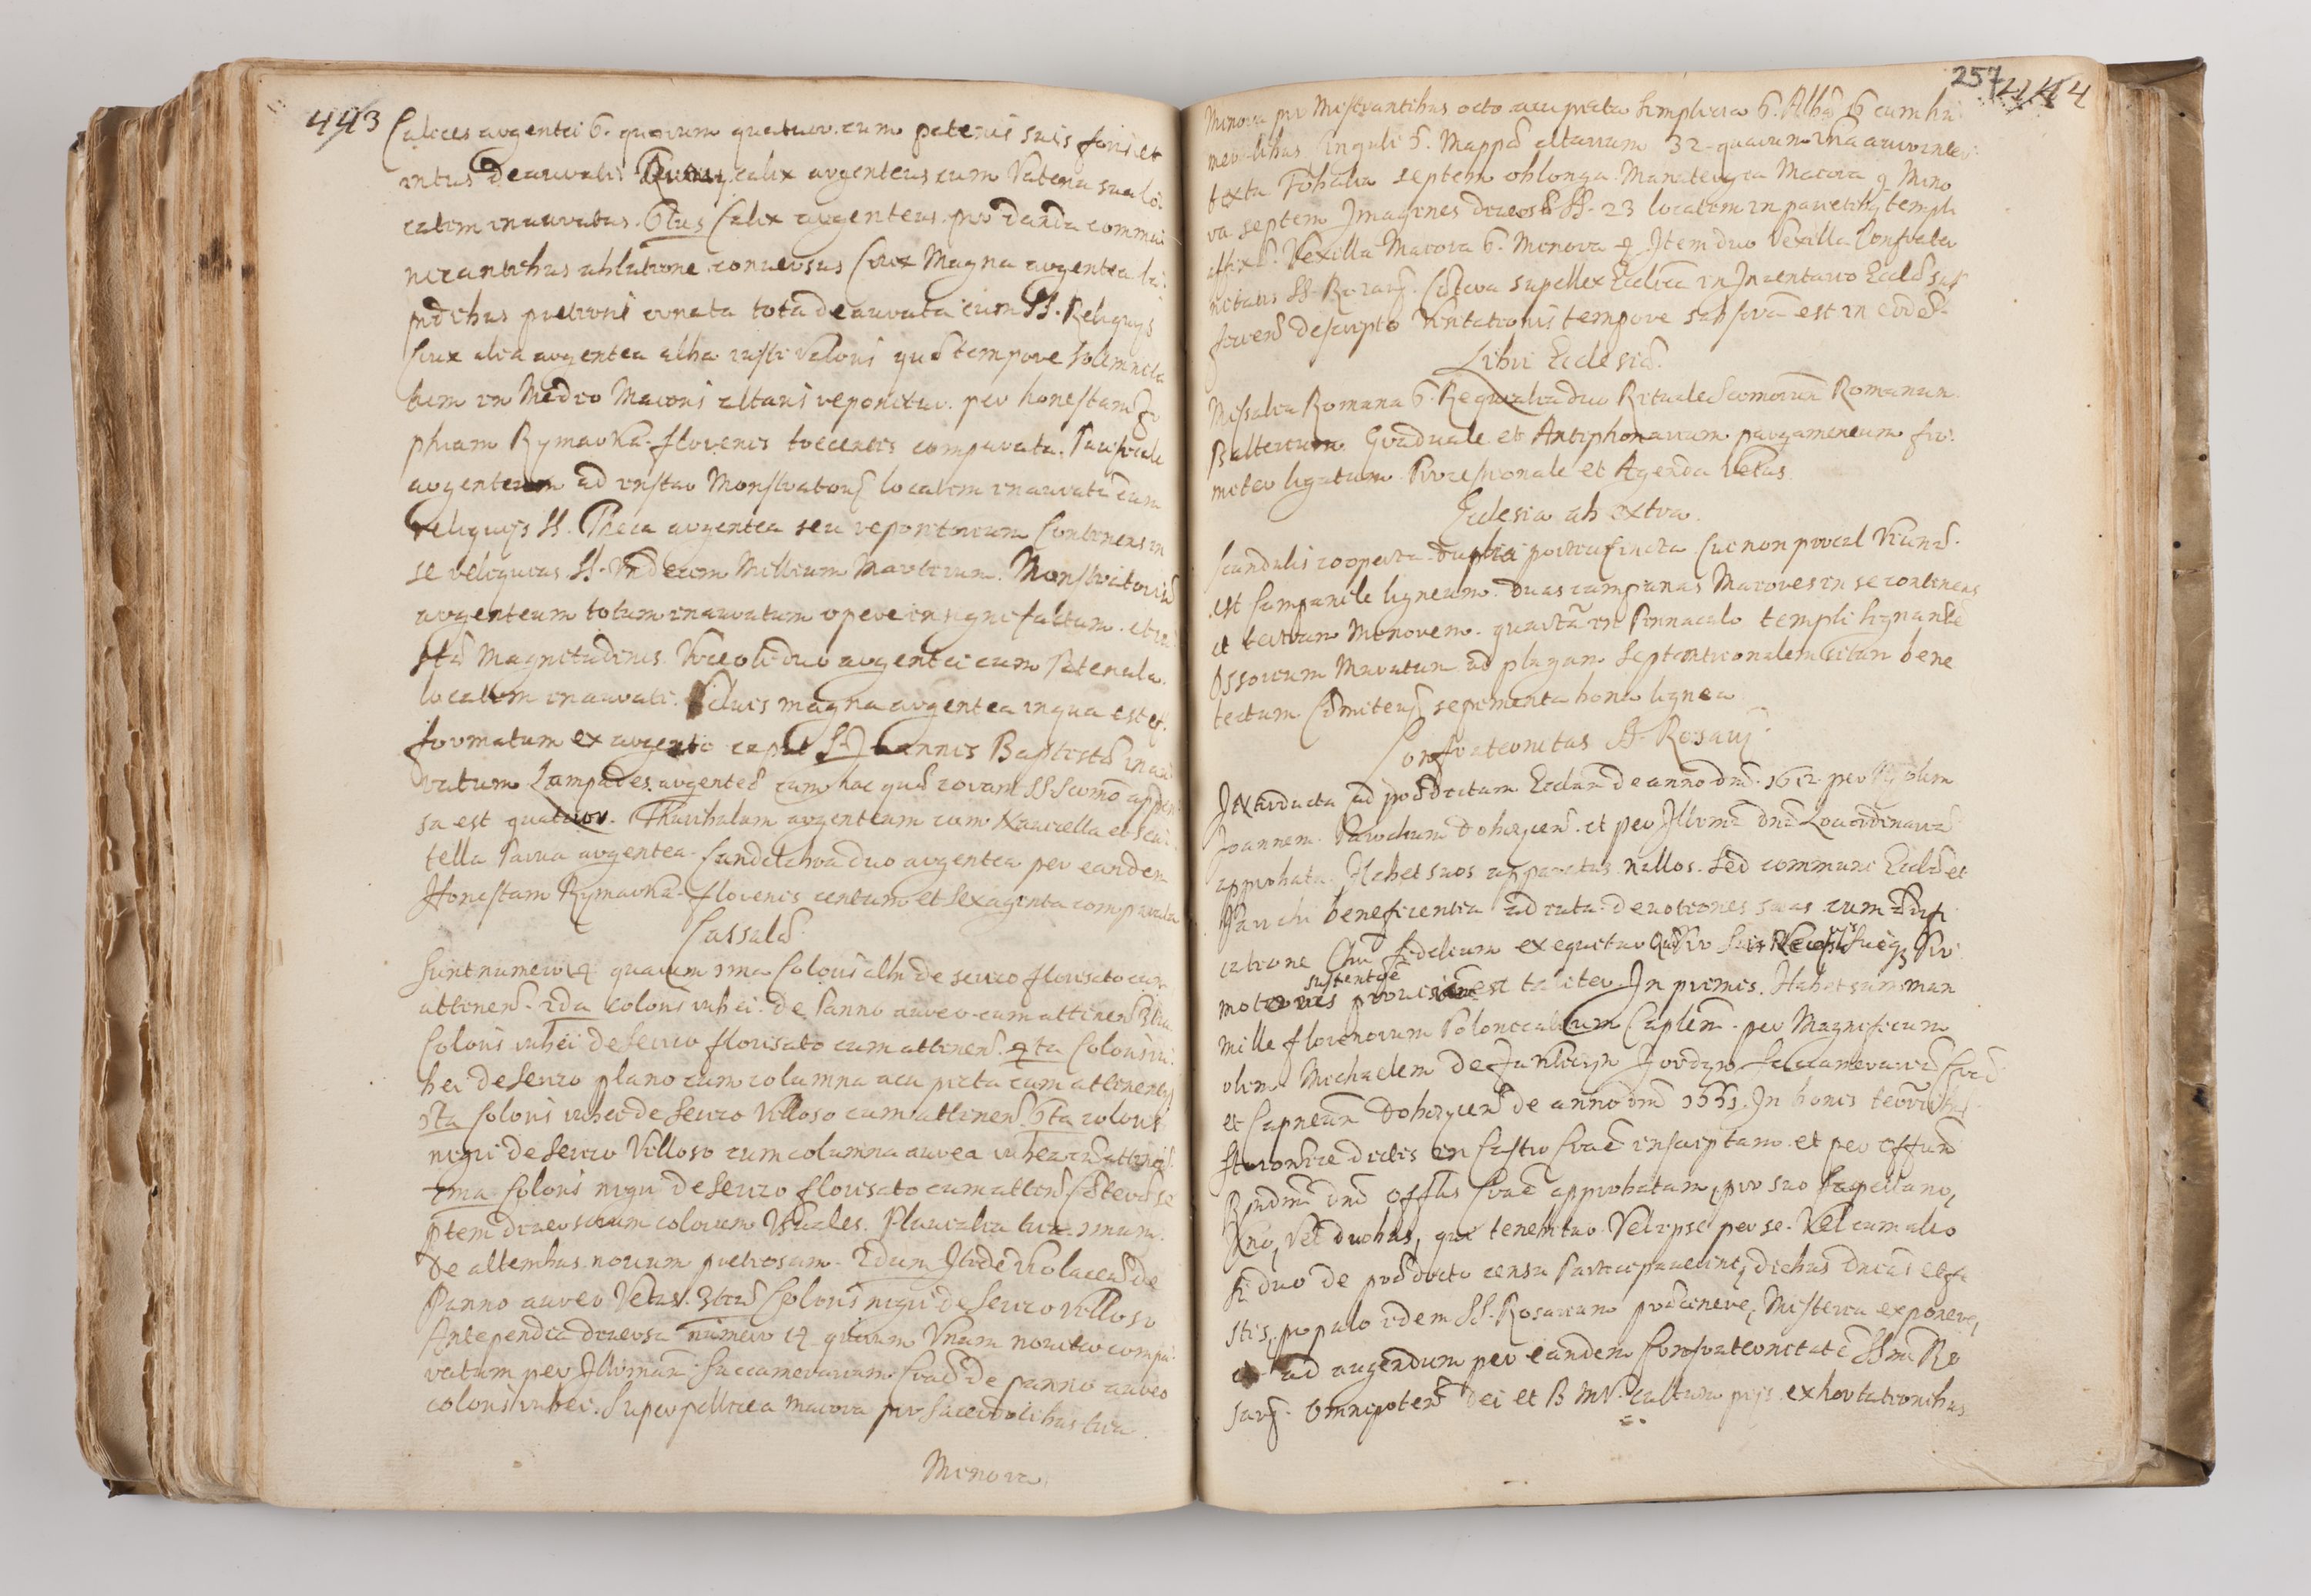 443
Calices argentei 6. quorum quatuor cum patenis suis foris et
intus deaurati calix argenteus cum Patena sua lo-
catim inauratus. 6tus Calix argenteus pro danda commu
nicantibus ablutione conversus Crux Magna argentea la-
pidibus pretiosis ornata tota deaurata cum SS. Reliquys
Crux alia argentea alba iusti valoris quæ tempore solemnita
tum in Medio Maioris altaris reponitur. per honestam So
phiam Rymarka florenis trecentis comparata. Pacificale
argenteum ad instar Monstratory locatim inauratu cum
reliquys SS. Theca argentea seu repositorium Continens in
se reliquias SS. Undecim Millium Martirum. Monstratoriu
argenteum totum inauratum opere insigni factum et iu
stæ Magnitudinis. Urceoli duo argentei cum Patenula
locatim inaurati. Pelvis magna argentea in qua est ef-
formatum ex argento caput S. Joannis Baptistæ inau
ratum Lampades argenteæ cum hac quæ coram SS. Scrmo appen
sa est quatuor. Thuribulum argenteum cum Navicella et Scu-
tella Parva argentea. Candelabra duo argentea per eandem
Honestam Rymarka florenis centum et Sexaginta comparata
Cassulæ
Sunt numero 14 quarum 1ma Coloris albi de serico florisato cum
attinen. 2da coloris rubei de Panno aureo cum attinen 3tia
Coloris rubei de Serico florisato cum attinen. 4ta Coloris ru-
bei de Serico plano cum columna acu picta cum attinentys
5ta Coloris rubei de Serico Villoso cum attinen. 6ta coloris
nigri de Serico Villoso cum columna aurea rubea cu attinen.
7ma Coloris nigri de Serico florisato cum attin Cæteræ se
ptem diversorum colorum Usuales. Pluvialia tria. 1mum
de altembas novum pretiosum. 2dum Itide violaceu de
Panno aureo Vetus. 3tiu Coloris nigri de Serico Villoso
Antependia diversa numero 14 quorum Unum noviter compa-
ratum per Illrmam Succamerariam Crac de panno aureo
coloris rubei. Superpellicea maiora pro Sacerdotibus tria
Minora
257 444
Minora pro Ministrantibus octo acu picta simplicia 6. Albæ 16 cum hu
meralibus Cinguli 5. Mappæ altarium 32 quarum Una auro inter-
texta Tobalia septem oblonga. Manitergia Maiora 4 Mino
ra septem Imagines diversæ SS. 23 locatim in parietibus templi
affixæ. Vexilla Maiora 6. Minora 4 Item duo Vexilla Confrater
nitatis SS. Rosary. Cætera supellex Ecclica in Inventario Ecclæ suf
ficien descripto Visitationis tempore subscriba est in eode
Libri Ecclesiæ.
Missalia Romana 6. Requialia duo Rituale Scrmorum Romanum
Psalterium Graduale et Antiphonarium pargameneum fir-
miter ligatum Processionale et Agenda Vetus.
Ecclesia ab extra.
Scandulis cooperta duplici porticu cincta Cui non procul Vicinu
est Campanile ligneum. duas campanas Maiores in se continens
et tertiam Minorem quarta in Pinnaculo templi signante
Ossorium Muratum ad plagam Septentrionalem situm bene
tectum Cæmitery sepimenta bona lignea
Confraternitas SS. Rosary.
Introducta ad prædictam Ecclam de anno dni 1612 per R olim
Joannem Parochum Dobczycen. et per Illrmu dnu Loci ordinariu
approbata. Habet suos apparatus nullos. Sed communi Ecclæ et
Parochi beneficentia adiuta devotiones suas cum ædifi
catione Chri fidelium exequitur Quæ pro suis Necessitis suiq3 Pro
motionis sustentõe provisum est taliter. In primis. Habet summam
mille florenorum Polonicalium Caplem per Magnificum
olim Michaelem de Zakliczyn Jordan Succamerariu Crac
et Capneum Dobczycen de anno dni 1651. In bonis terrestribus
Stronicze dictis in Castro Crac inscriptam et per Offum
Rndmi dni Offlis Crac approbatam, pro suo Capellano,
Uno, Vel duobus, qui tenebitur Vel ipse per se. Vel cum alio
si duo de prædicto censu Participaverint, diebus Dnicis et fe
stis, populo idem SS. Rosarium præcinere, Misteria exponere,
ad augendum per eandem Confraternitate SSmi Ro
sary. omnipoten Dei et B M V. cultum pijs exhortationibus